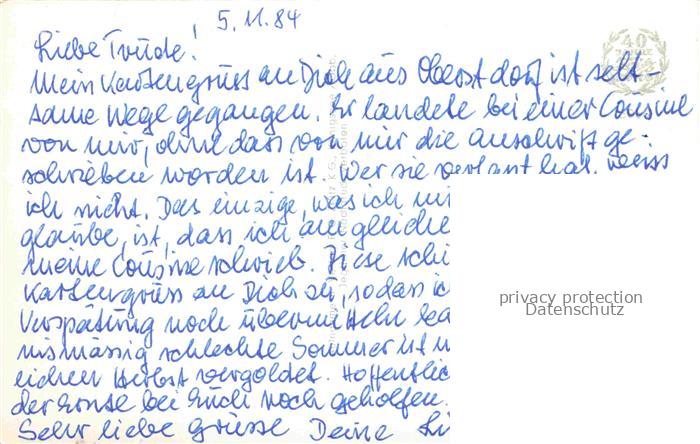 5.11.84
Liebe Trude!
Mein Kartengruss an Dich aus Oberstdorf ist selt-
same Wege gegangen. Er landete bei einer Cousine
von mir, ohne dass von mir die Anschrift ge-
schrieben worden ist. Wer sie verlangt hat, weiss
ich nicht. Das einzige, was ich mir
glaube, ist, dass ich am gleiche
meine Cousine schrieb. Diese schi
Kartengruss an Dich zu, sodass ic
Verspätung noch übermitteln ka
nismässig schlechte Sommer ist
eichen Herbst vergoldet. Hoffentlic
der Ernte bei Euch noch geholfen.
Sehr liebe Grüsse Deine Li
privacy protection
Datenschutz
40